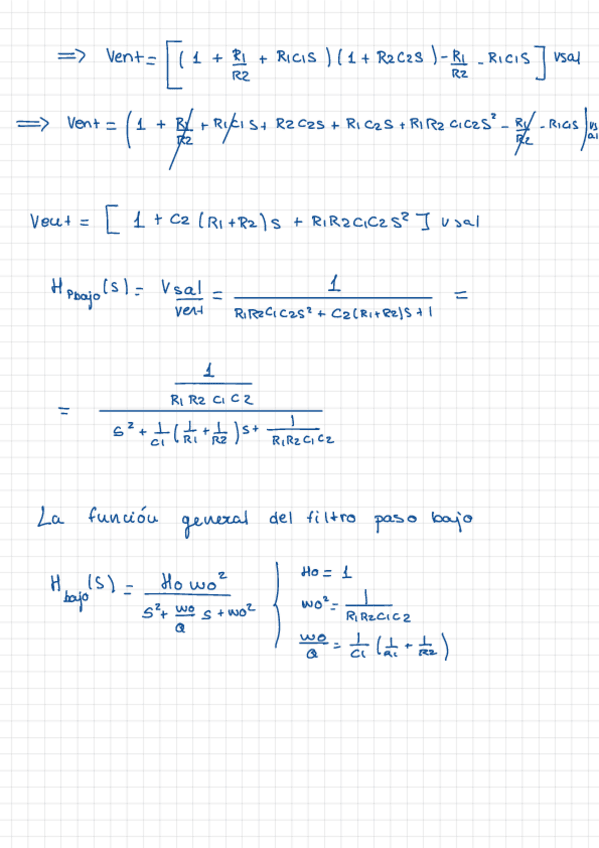 => Vent = [ (1 + R1/R2 + R1C1S)(1 + R2C2S) - R1/R2 - R1C1S ] Vsal
=> Vent = (1 + R1/R2 + R1C1S + R2C2S + R1C2S + R1R2C1C2S² - R1/R2 - R1C1S) Vsal
Vent = [ 1 + C2(R1+R2)S + R1R2C1C2S² ] Vsal
H Pbajo (S) = Vsal/Vent = 1/(R1R2C1C2S² + C2(R1+R2)S + 1) =
= (1/(R1R2C1C2))/(S² + 1/C1(1/R1 + 1/R2)S + 1/(R1R2C1C2))
La función general del filtro paso bajo
H bajo (S) = Ho wo²/(S² + wo/Q S + wo²)
Ho = 1
wo² = 1/(R1R2C1C2)
wo/Q = 1/C1(1/R1 + 1/R2)